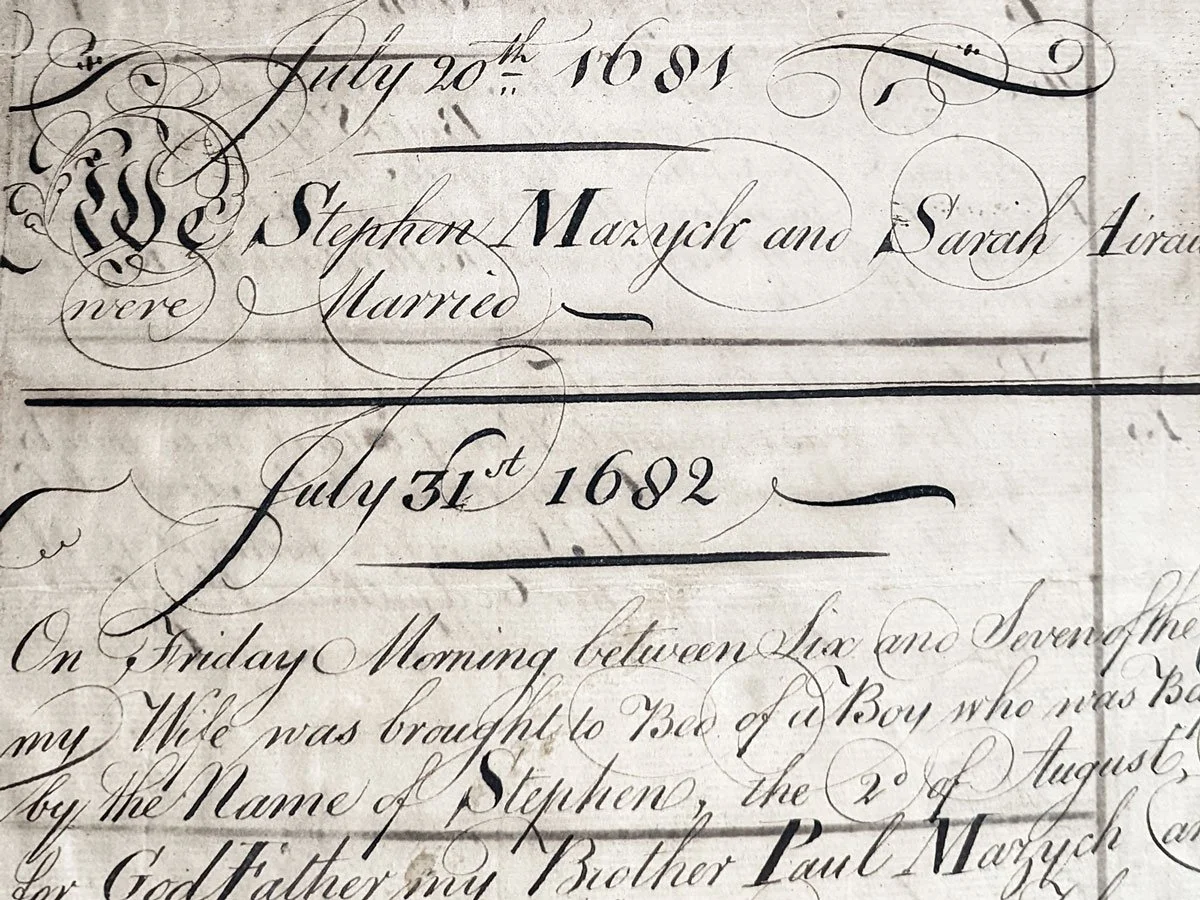 July 20th 1681
We Stephen Mazyck and Sarah
were Married
July 31st 1682
On Friday Morning between Six and Seven of the
my Wife was brought to Bed of a Boy who was
by the Name of Stephen, the 2d of August,
for GodFather my Brother Paul Mazych